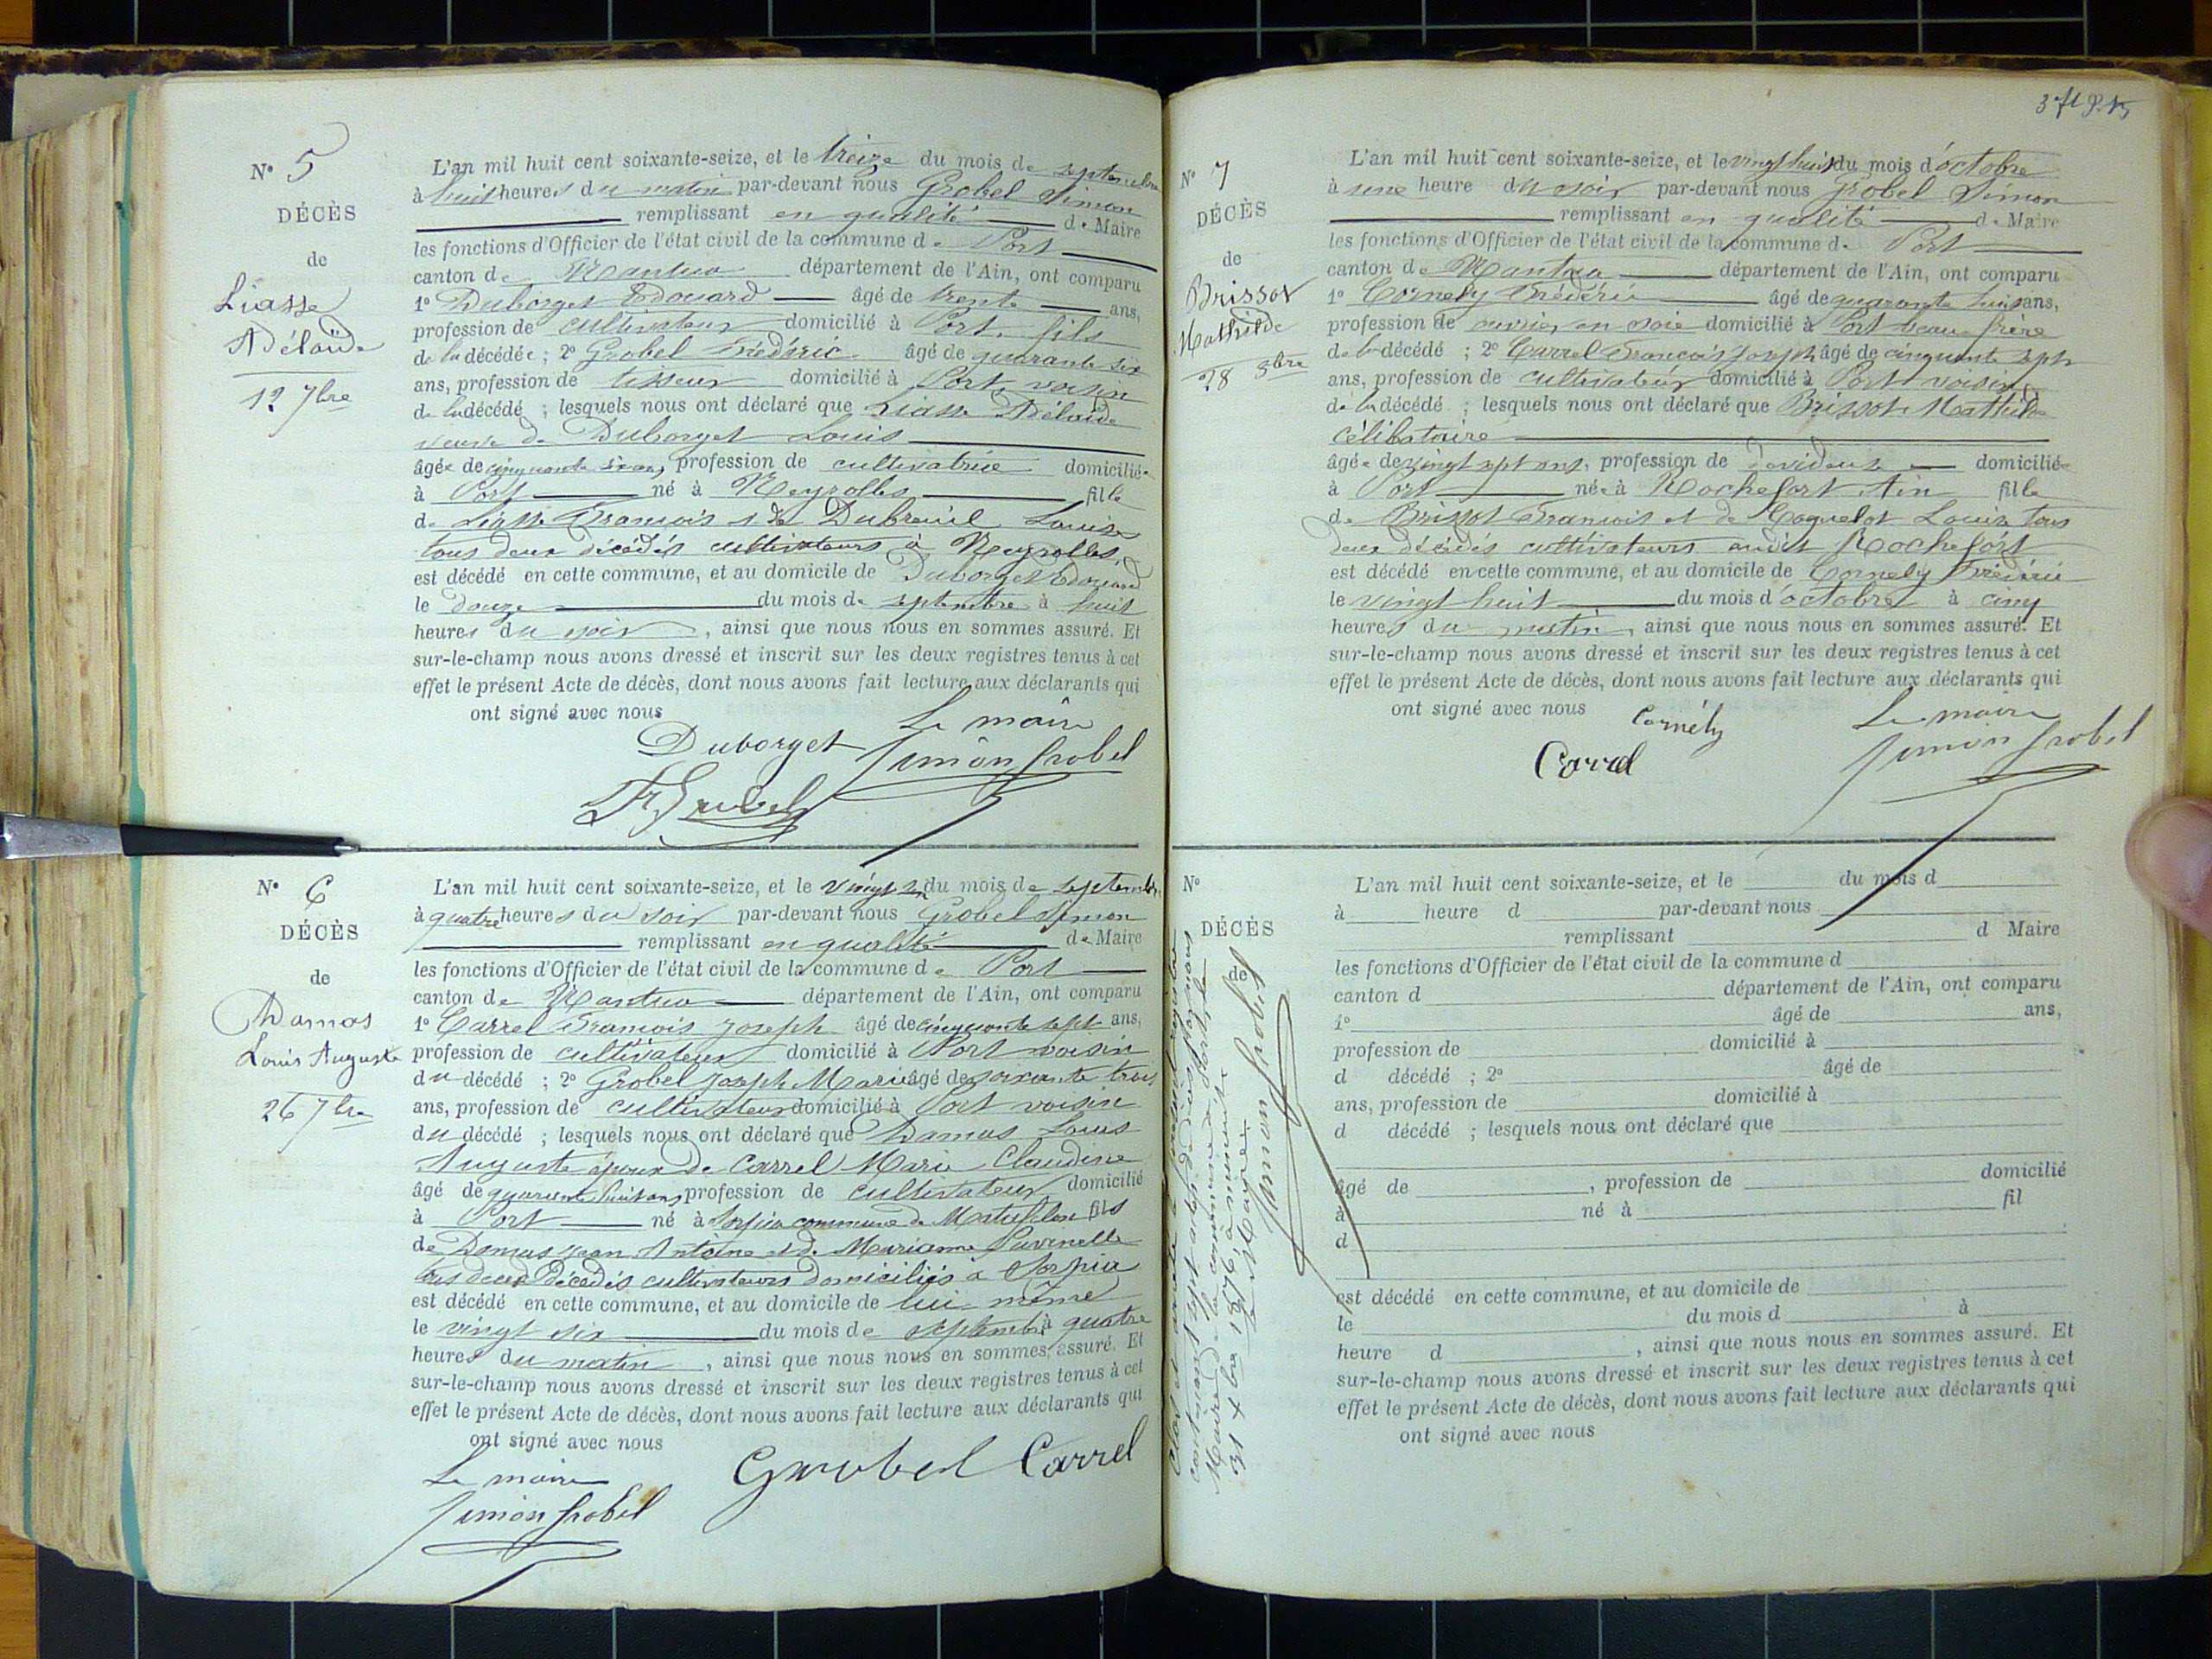 N° 5
DÉCÈS
de
Liasse
Adélaïde
12 7bre
L'an mil huit cent soixante-seize, et le treize du mois de septembre
à huit heures du matin par-devant nous Grobel Simon
remplissant en qualité de Maire
les fonctions d'Officier de l'état civil de la commune de Port
canton de Nantua département de l'Ain, ont comparu
1° Duborget Edouard âgé de trente ans,
profession de cultivateur domicilié à Port, fils
de la décédée ; 2° Grobel Frédéric âgé de quarante six
ans, profession de tisseur domicilié à Port voisin
de la décédé ; lesquels nous ont déclaré que Liasse Adélaïde
veuve de Duborget Louis
âgée de cinquante six ans, profession de cultivatrice domiciliée
à Port né à Neyrolles fille
de Liasse François et de Dubreuil Louise
tous deux décédés cultivateurs à Neyrolles,
est décédé en cette commune, et au domicile de Duborget Edouard
le douze du mois de septembre à huit
heures du soir, ainsi que nous nous en sommes assuré. Et
sur-le-champ nous avons dressé et inscrit sur les deux registres tenus à cet
effet le présent Acte de décès, dont nous avons fait lecture aux déclarants qui
ont signé avec nous
Le maire
Duborget Simon Grobel
Fr Grobel
N° 6
DÉCÈS
de
Damas
Louis Auguste
26 7bre
L'an mil huit cent soixante-seize, et le vingt six du mois de septembre
à quatre heures du soir par-devant nous Grobel Simon
remplissant en qualité de Maire
les fonctions d'Officier de l'état civil de la commune de Port
canton de Nantua département de l'Ain, ont comparu
1° Carrel François Joseph âgé de cinquante sept ans,
profession de cultivateur domicilié à Port voisin
du décédé ; 2° Grobel Joseph Marie âgé de soixante trois
ans, profession de cultivateur domicilié à Port voisin
du décédé ; lesquels nous ont déclaré que Damas Louis
Auguste époux de Carrel Marie Claudine
âgé de quarante huit ans, profession de cultivateur domicilié
à Port né à Sorpia commune de Matafelon fils
de Damas Jean Antoine et de Marianne
tous deux décédés cultivateurs domiciliés à Sorpia
est décédé en cette commune, et au domicile de lui-même
le vingt six du mois de septembre à quatre
heures du matin, ainsi que nous nous en sommes assuré. Et
sur-le-champ nous avons dressé et inscrit sur les deux registres tenus à cet
effet le présent Acte de décès, dont nous avons fait lecture aux déclarants qui
ont signé avec nous
Le maire Grobel Carrel
Simon Grobel
N° 7
DÉCÈS
de
Brissot
Mathilde
28 8bre
L'an mil huit cent soixante-seize, et le vingt huit du mois d'octobre
à une heure du soir par-devant nous Grobel Simon
remplissant en qualité de Maire
les fonctions d'Officier de l'état civil de la commune de Port
canton de Nantua département de l'Ain, ont comparu
1° Cornely Frédéric âgé de quarante huit ans,
profession de ouvrier en soie domicilié à Port beau-frère
de la décédé ; 2° Carrel François Joseph âgé de cinquante sept
ans, profession de cultivateur domicilié à Port voisin
de la décédé ; lesquels nous ont déclaré que Brissot Mathilde
célibataire
âgée de vingt sept ans, profession de devideuse domiciliée
à Port née à Rochefort Ain fille
de Brissot François et de Coquelot Louise tous
deux décédés cultivateurs audit Rochefort
est décédé en cette commune, et au domicile de Cornely Frédéric
le vingt huit du mois d'octobre à cinq
heures du matin, ainsi que nous nous en sommes assuré. Et
sur-le-champ nous avons dressé et inscrit sur les deux registres tenus à cet
effet le présent Acte de décès, dont nous avons fait lecture aux déclarants qui
ont signé avec nous
Cornély Le maire
Carrel Simon Grobel
N°
DÉCÈS
de
L'an mil huit cent soixante-seize, et le du mois d
à heure d par-devant nous
remplissant d Maire
les fonctions d'Officier de l'état civil de la commune d
canton d département de l'Ain, ont comparu
1° âgé de ans,
profession de domicilié à
d décédé ; 2° âgé de
ans, profession de domicilié à
d décédé ; lesquels nous ont déclaré que
âgé de , profession de domicilié
à né à fil
d
est décédé en cette commune, et au domicile de
le du mois d à
heure d , ainsi que nous nous en sommes assuré. Et
sur-le-champ nous avons dressé et inscrit sur les deux registres tenus à cet
effet le présent Acte de décès, dont nous avons fait lecture aux déclarants qui
ont signé avec nous
Clos et arrêté le présent registre
contenant sept actes de décès par nous
Maire de la commune de Port le
31 Xbre 1876 à minuit
Le Maire
Simon Grobel